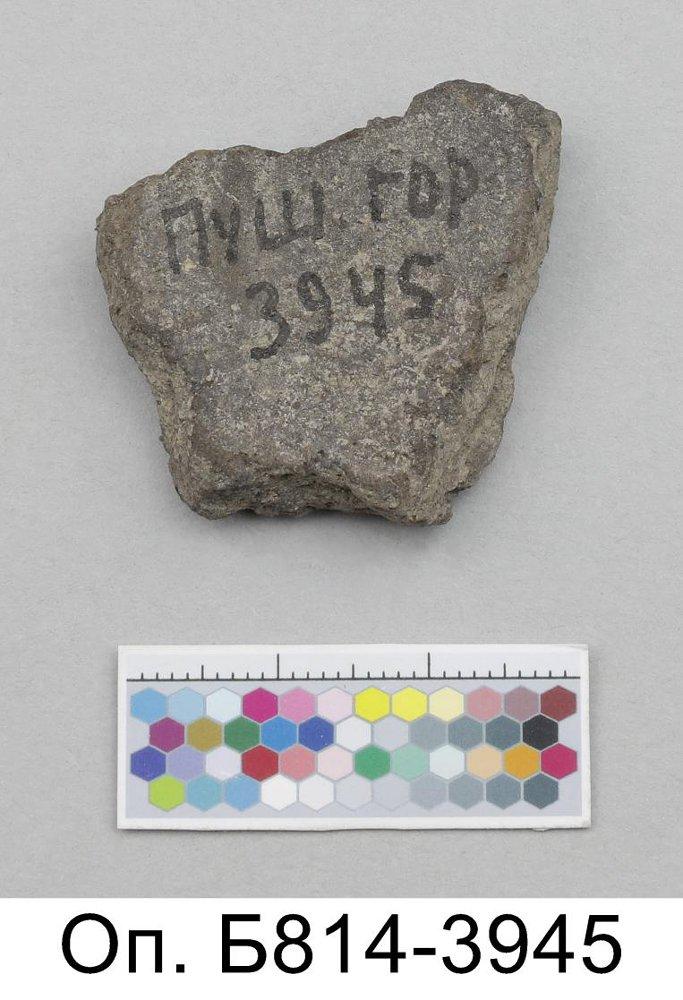 Пуш. гор
3945
Оп. Б814-3945